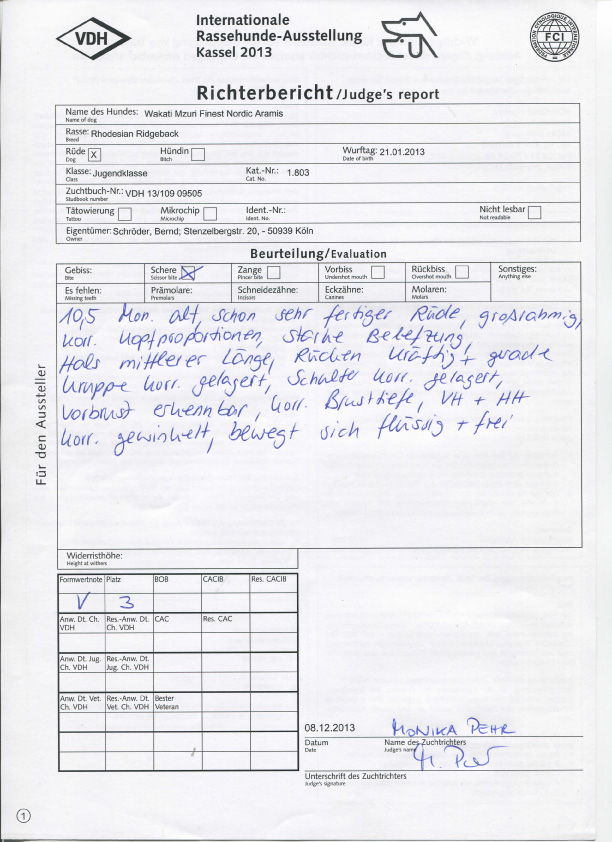 VDH
Internationale
Rassehunde-Ausstellung
Kassel 2013
FCI
FEDERATION CYNOLOGIQUE INTERNATIONALE
Richterbericht/Judge's report
Name des Hundes: Wakati Mzuri Finest Nordic Aramis
Name of dog
Rasse: Rhodesian Ridgeback
Breed
Rüde X Hündin Wurftag: 21.01.2013
Dog Bitch Date of birth
Klasse: Jugendklasse Kat.-Nr.: 1.803
Class Cat. No.
Zuchtbuch-Nr.: VDH 13/109 09505
Studbook number
Tätowierung Mikrochip Ident.-Nr.: Nicht lesbar
Tattoo Microchip Ident. No. Not readable
Eigentümer: Schröder, Bernd; Stenzelbergstr. 20, - 50939 Köln
Owner
Beurteilung/Evaluation
Gebiss: Schere X Zange Vorbiss Rückbiss Sonstiges:
Bite Scissor bite Pincer bite Undershot mouth Overshot mouth Anything else
Es fehlen: Prämolare: Schneidezähne: Eckzähne: Molaren:
Missing teeth Premolars Incisors Canines Molars
10,5 Mon. alt, schon sehr fertiger Rüde, großrahmig,
korr. Kopfproportionen, starke Belefzung,
Hals mittlerer Länge, Rücken kräftig + grade
Kruppe korr. gelagert, Schulter korr. gelagert,
Vorbrust erkennbar, korr. Brusttiefe, VH + HH
korr. gewinkelt, bewegt sich flüssig + frei
Für den Aussteller
Widerristhöhe:
Height at withers
Formwertnote Platz BOB CACIB Res. CACIB
V 3
Anw. Dt. Ch. Res.-Anw. Dt. CAC Res. CAC
VDH Ch. VDH
Anw. Dt. Jug. Res.-Anw. Dt.
Ch. VDH Jug. Ch. VDH
Anw. Dt. Vet. Res.-Anw. Dt. Bester
Ch. VDH Vet. Ch. VDH Veteran
08.12.2013 MONIKA PEHR
Datum Name des Zuchtrichters
Date Judge's name
Unterschrift des Zuchtrichters
Judge's signature
1